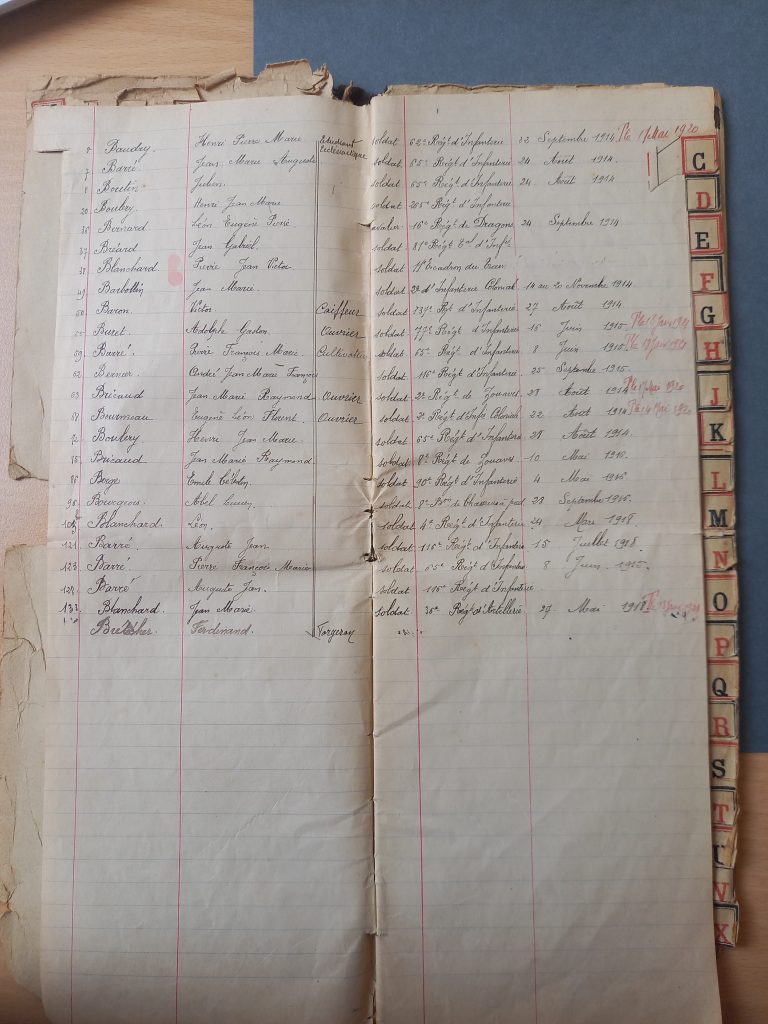 Baudry. Henri Pierre Marie Etudiant Ecclésiastique soldat 62e Régt d'Infanterie 22 Septembre 1914
7 Barré. Jean Marie Auguste soldat 65e Régt d'Infanterie 24 Août 1914.
Boutin Julien. soldat 65e Régt d'Infanterie 24 Août 1914
20 Boulery. Henri Jean Marie soldat 205e Régt d'Infanterie
36 Bernard Léon Eugène René. 16e Régt de Dragons 24 Septembre 1914
37 Bréard Jean Gabriel. soldat 81e Régt d'Infie
38 Blanchard Pierre Jean Victor soldat 11e Escadron du Train
49 Barbottin Jean Marie. soldat d'Infanterie Coloniale 14 au 20 Novembre 1914.
50 Baron. Victor Coiffeur soldat 137e Rgt d'Infanterie 27 Août 1914.
55 Buret. Adolphe Gaston. Ouvrier soldat 77e Régt d'Infanterie 16 Juin 1915.
59 Barré. Pierre François Marie. Cultivateur soldat 65e Régt d'Infanterie 8 Juin 1915.
62 Bernier André Jean Marie François soldat 116e Régt d'Infanterie 25 Septembre 1915.
63 Bricaud Jean Marie Raymond Ouvrier soldat 2e Régt de Zouaves 28 Août 1914
Eugène Léon Florent. Ouvrier soldat 2e Régt d'Infie Coloniale 22 Août 1914
Boulery Henri Jean Marie. soldat 65e Régt d'Infanterie 28 Août 1914.
Bricaud Jean Marie Raymond. soldat 8e Régt de Zouaves 10 Mai 1915.
Émile soldat 90e Régt d'Infanterie 4 Mai 1915
Bourgeois. Abel soldat 8e Bon de Chasseurs à pied 29 Septembre 1915.
Blanchard. Léon. soldat 4e Régt d'Infanterie 24 Mars 1918.
121 Barré. Auguste Jean. soldat 116e Régt d'Infanterie 15 Juillet 1918.
123 Barré. Pierre François Marie soldat 65e Régt d'Infanterie 8 Juin 1915.
Barré Auguste Jean. soldat 116e Régt d'Infanterie
132 Blanchard Jean Marie. soldat 35e Régt d'Artillerie 27 Mai 1918
Ferdinand. Forgeron
C
D
E
F
G
H
J
K
L
M
N
O
P
Q
R
S
T
U
V
X